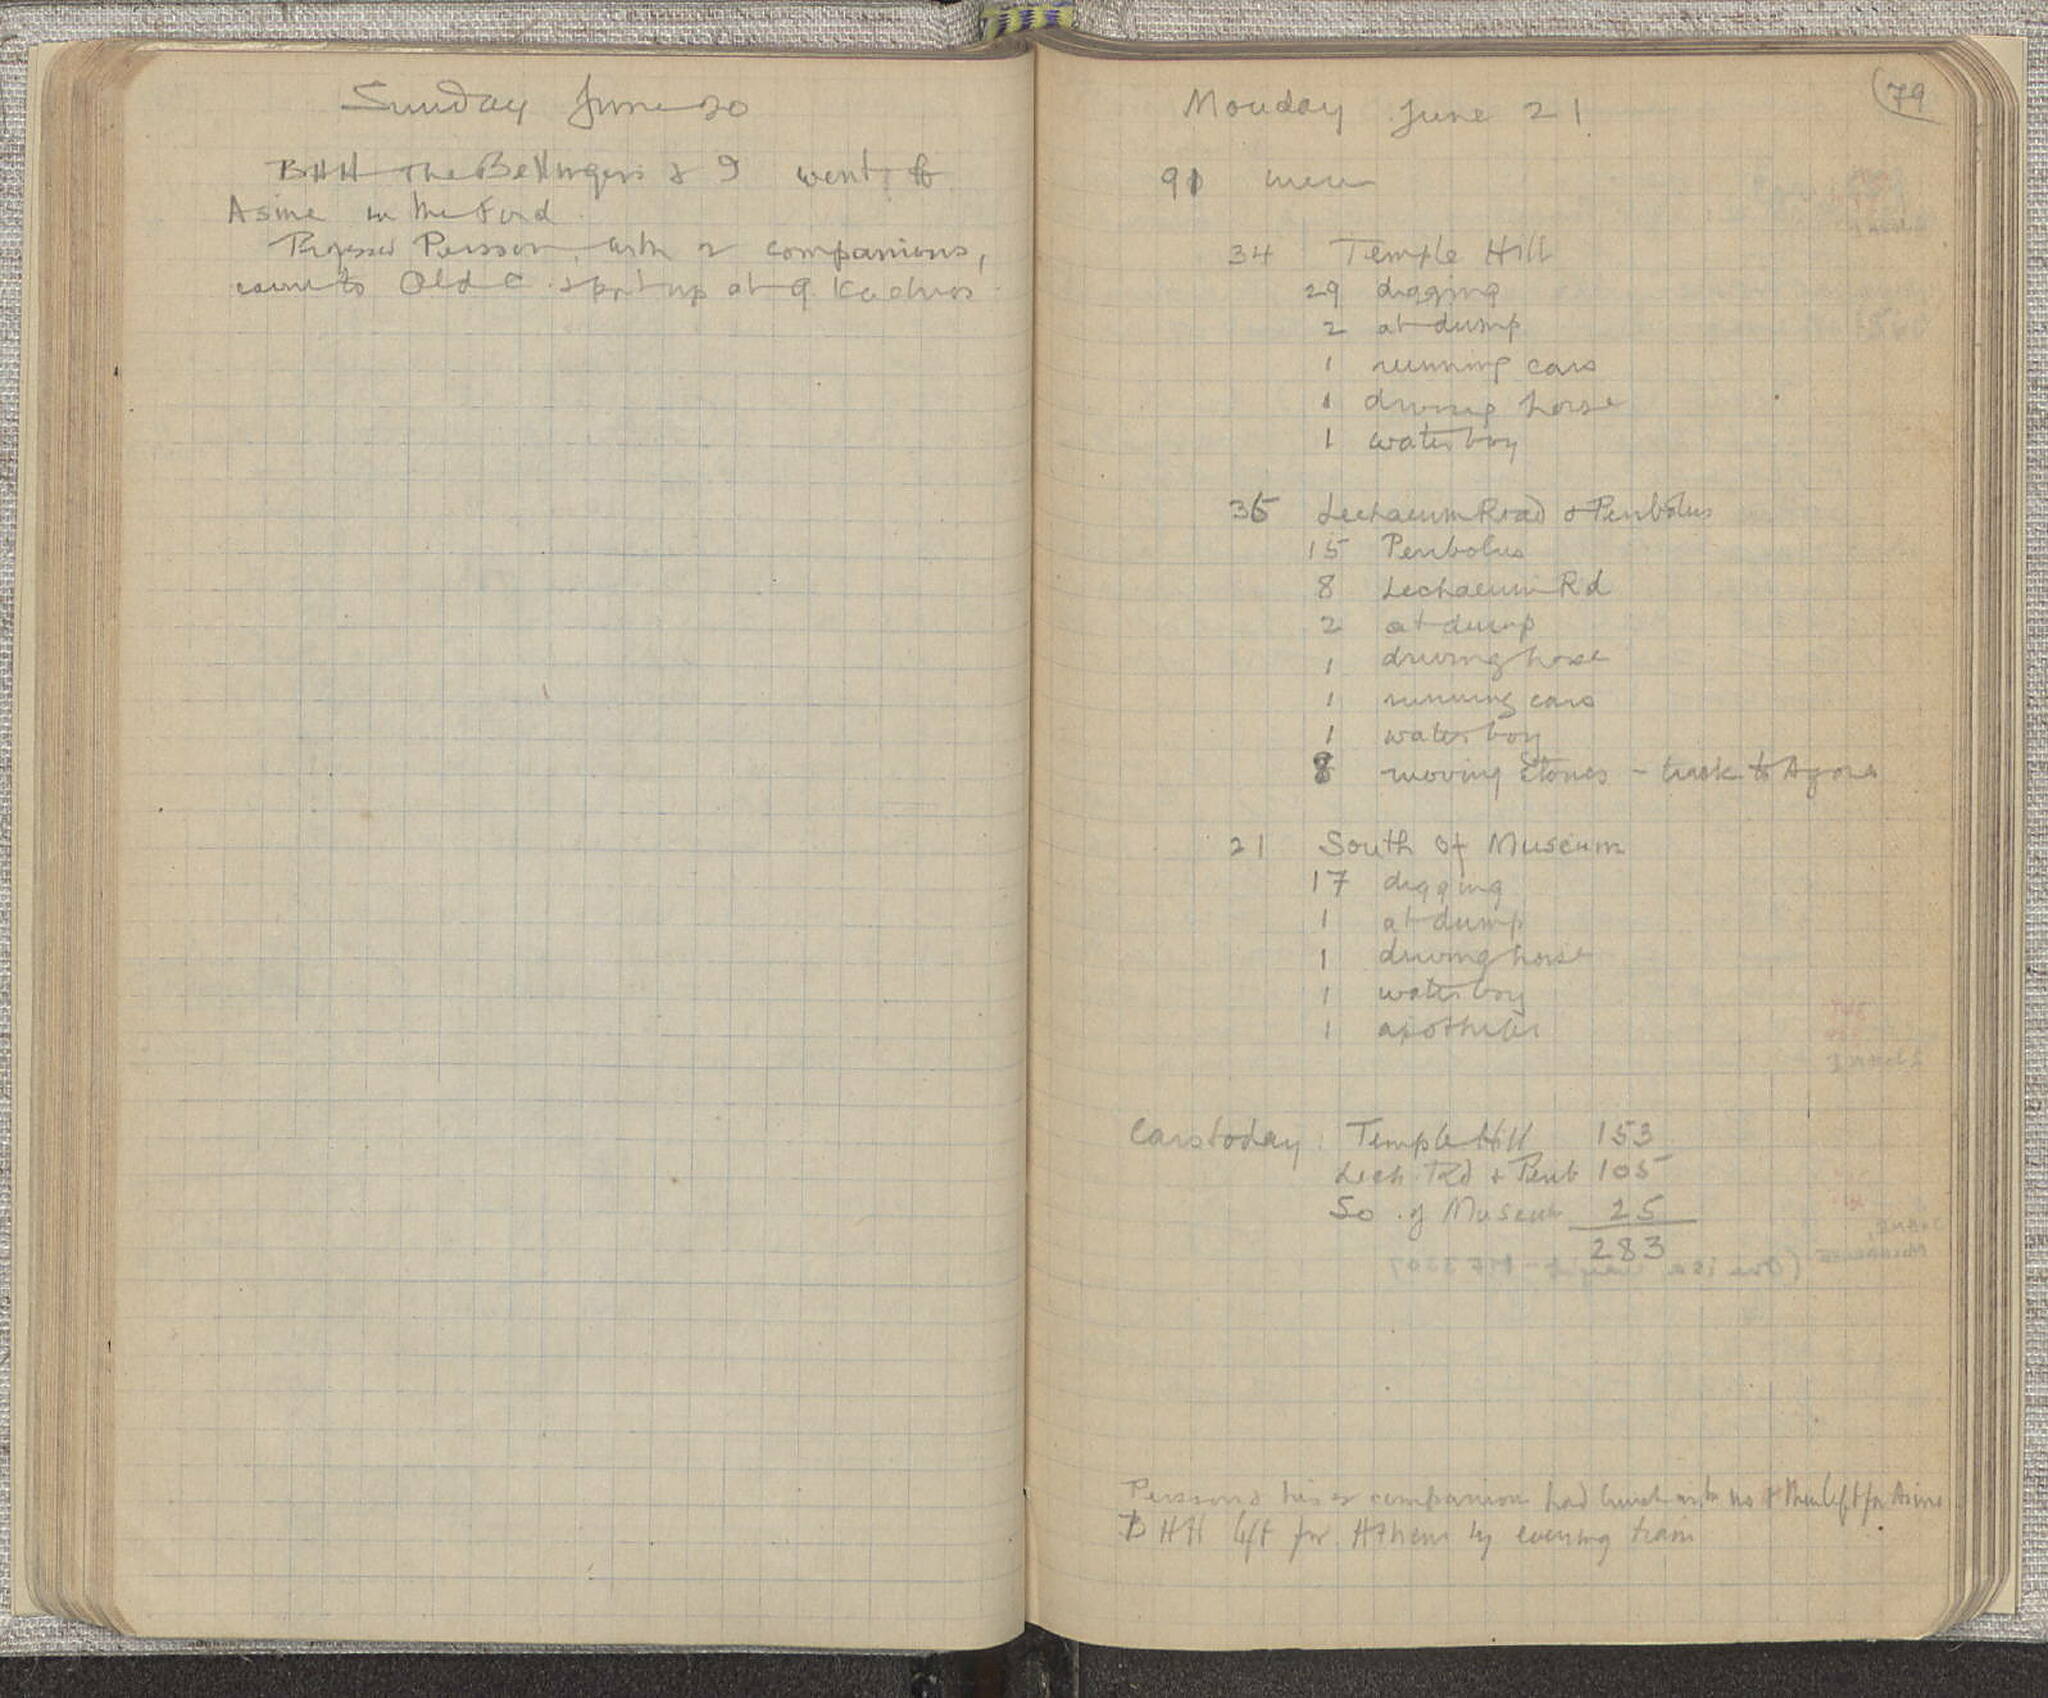 Sunday June 20
BHH The Bellingers & I went to
Asine in the Ford.
Professor Persson, with 2 companions,
came to Old C. & put up at G. Kachros
79
Monday June 21
91 men
34 Temple Hill
29 digging
2 at dump
1 running cars
1 driving horse
1 water boy
36 Lechaeum Road & Peribolus
15 Peribolus
8 Lechaeum Rd
2 at dump
1 driving horse
1 running cars
1 water boy
8 moving stones - track to Agora
21 South of Museum
17 digging
1 at dump
1 driving horse
1 water boy
1 apotheke
Cars today: Temple Hill 153
Lech. Rd & Perib 105
So. of Museum 25
283
Persson & his 2 companions had lunch with us & then left for Asine
BHH left for Athens by evening train